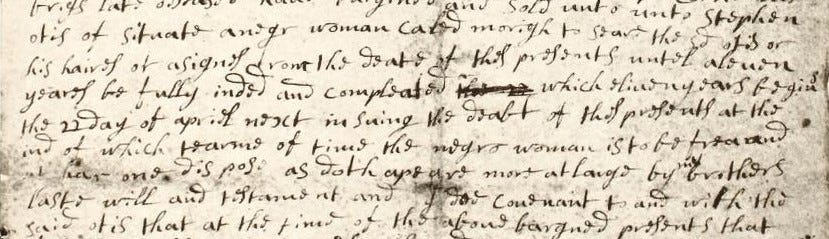 late desesed have bargined and sold unto unto Stephen
otis of situate a negr woman caled morigh to searve the sd otis or
his haires or asignes from the deate of thes presents untel aleven
yeares be fully inded and compleated which eliven years begins
the 22 day of apriel next insuing the deabt of thes presents at the
ind of which tearme of time the negro woman is to be frea and
at har one dispose as doth apeare more at large by my brothers
laste will and testament and I doe covenant to and with the
said otis that at the time of the above bargned presents that